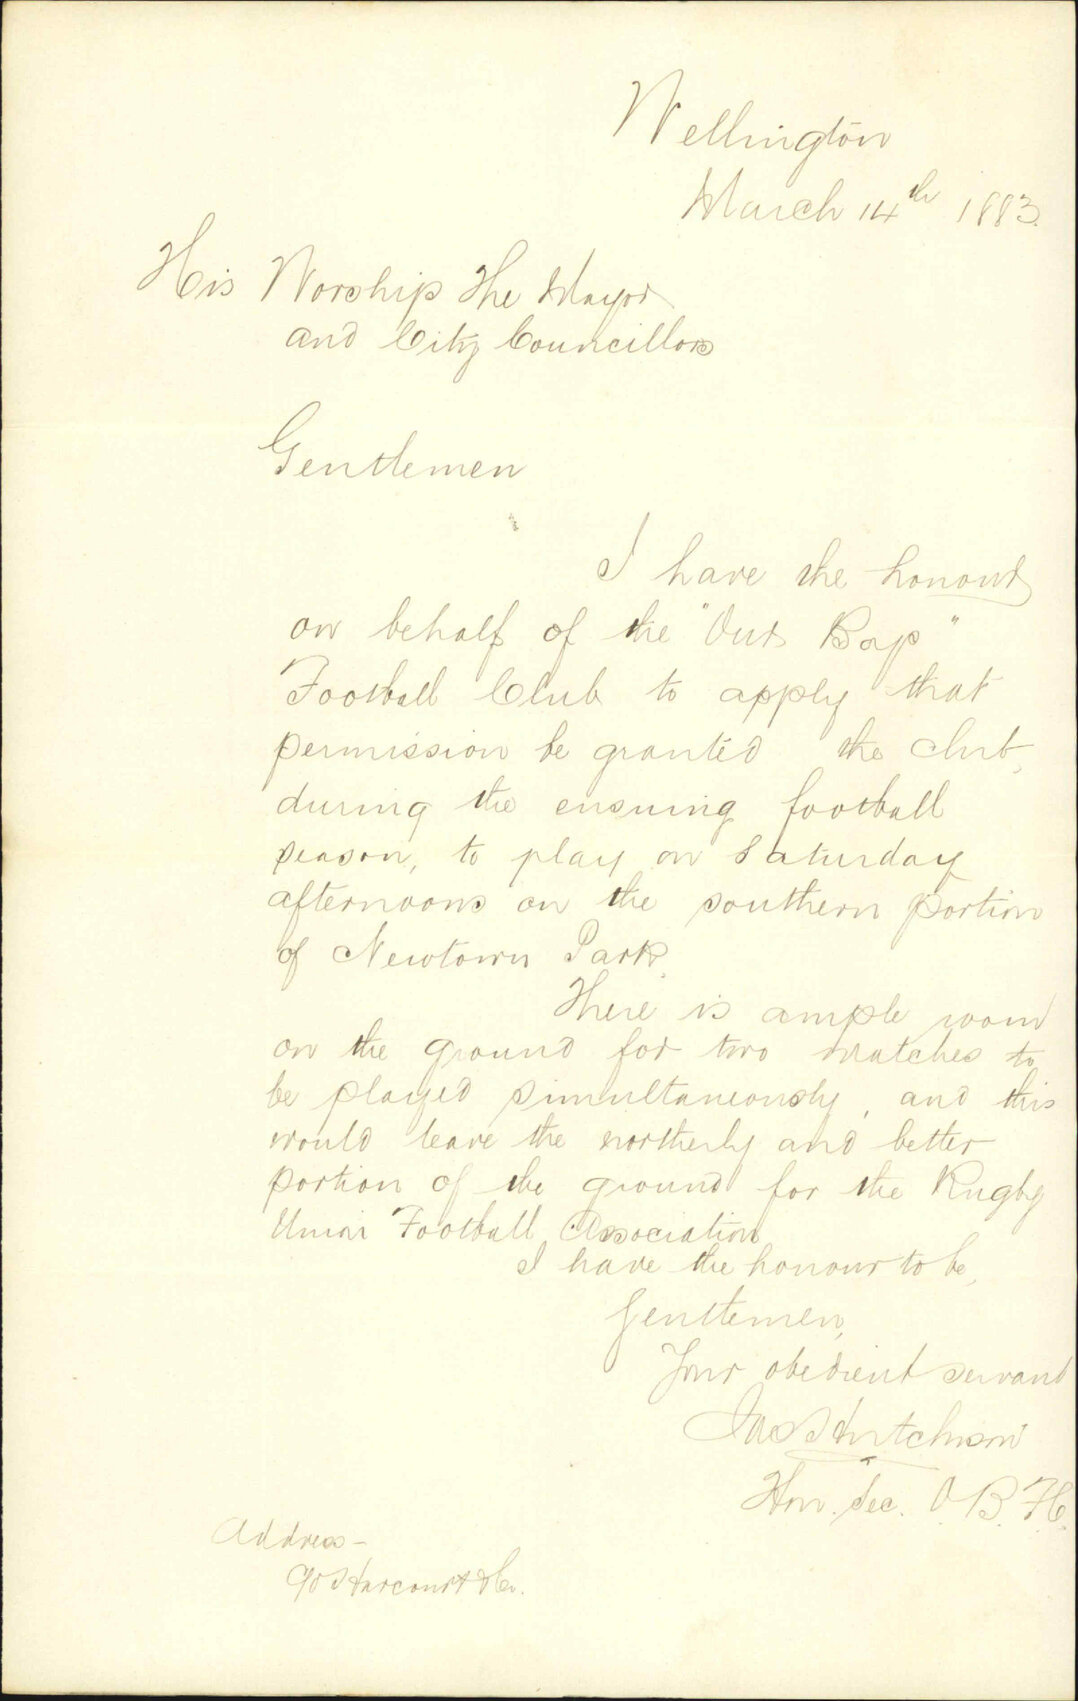 Wellington
March 14th 1883.
His Worship The Mayor
and City Councillors
Gentlemen
I have the honour
on behalf of the "Our Boys"
Football Club to apply that
permission be granted the club,
during the ensuing football
season, to play on Saturday
afternoons on the southern portion
of Newtown Park.
There is ample room
on the ground for two matches to
be played simultaneously, and this
would leave the northerly and better
portion of the ground for the Rugby
Union Football Association
I have the honour to be,
Gentlemen,
Your obedient servant
Hutchison
Hon. Sec. O.B.F.C.
Address-
Harcourt & Co.